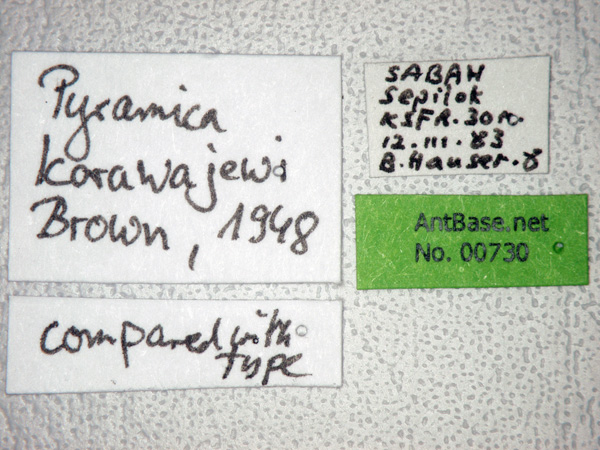 Pyramica
korawajewi
Brown, 1948
compared with
type
SABAH
Sepilok
KSFR. 30 m.
12.III.83
B. Hauser. 8
AntBase.net
No. 00730